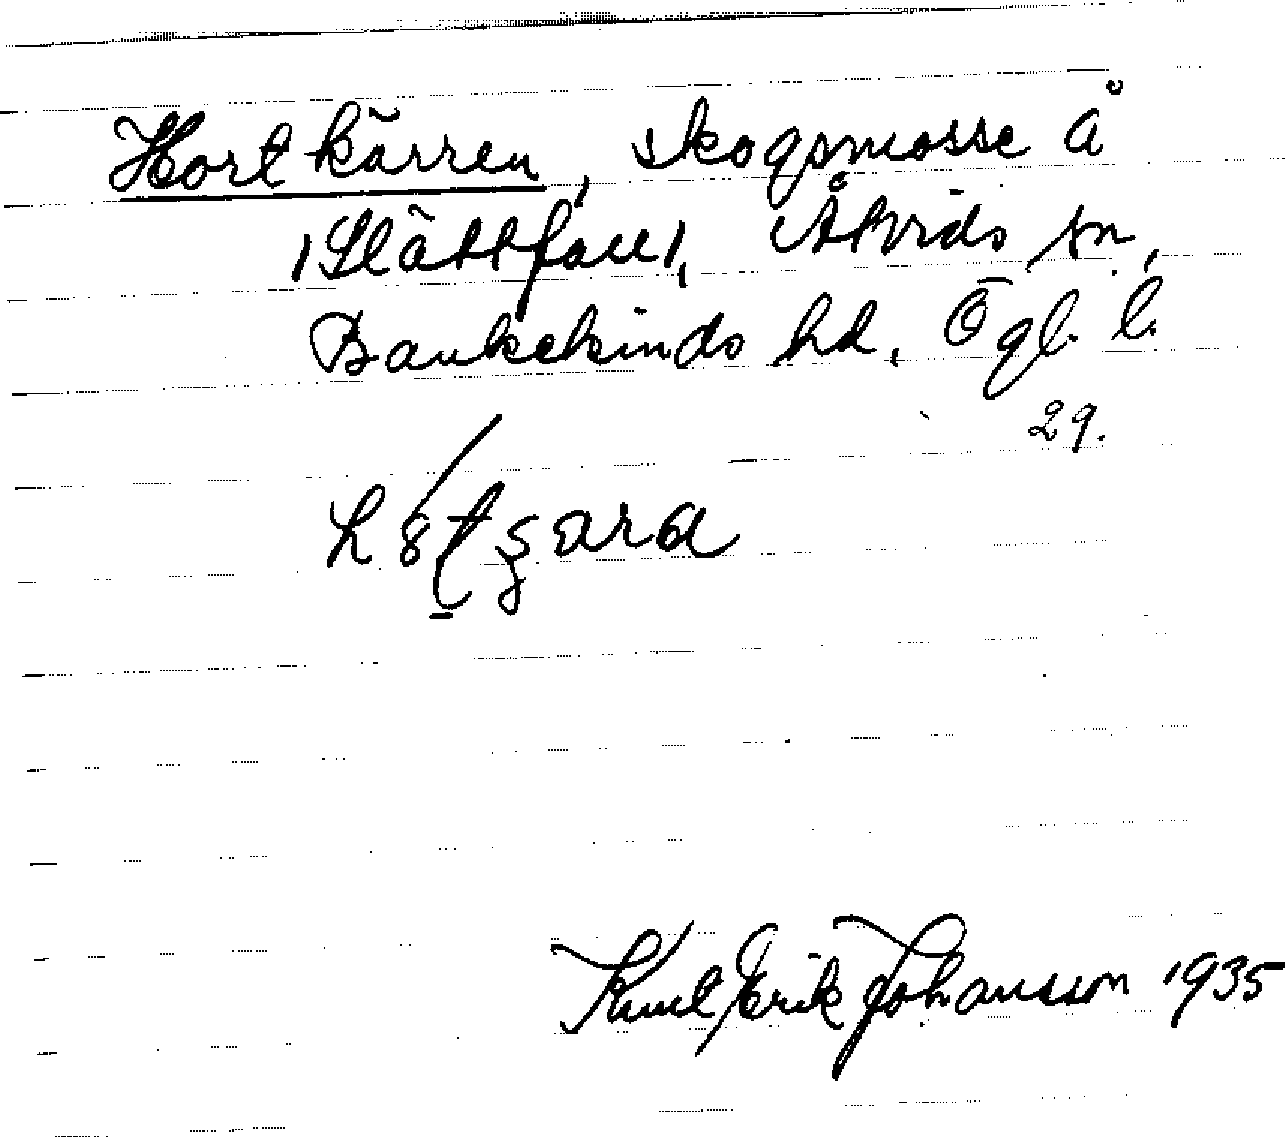 Hortkärren, skogsmosse å
/Slättfall/, Åtvids sn,
Bankekinds hd, Ögl. l.
29.
Knut Erik Johansson 1935